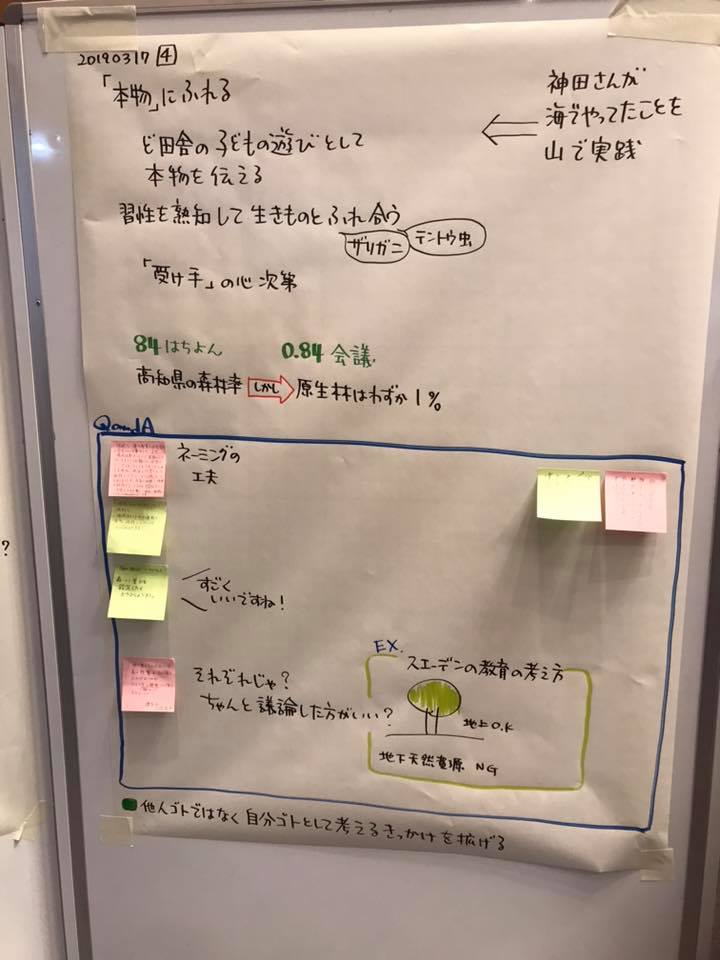 20190317 4
「本物」にふれる
ど田舎の子どもの遊びとして
本物を伝える
神田さんが
海でやってたことを
山で実践
習性を熟知して生きものとふれ合う
ザリガニ
テントウ虫
「受け手」の心次第
84はちよん
0.84会議.
高知県の森林率 しかし 原生林はわずか1%
QandA
ネーミングの
工夫
すごく
いいですね!
それぞれじゃ?
ちゃんと議論した方がいい?
EX.
スエーデンの教育の考え方
地上O.K
地下天然資源 NG
他人ゴトではなく自分ゴトとして考えるきっかけを拡げる
?